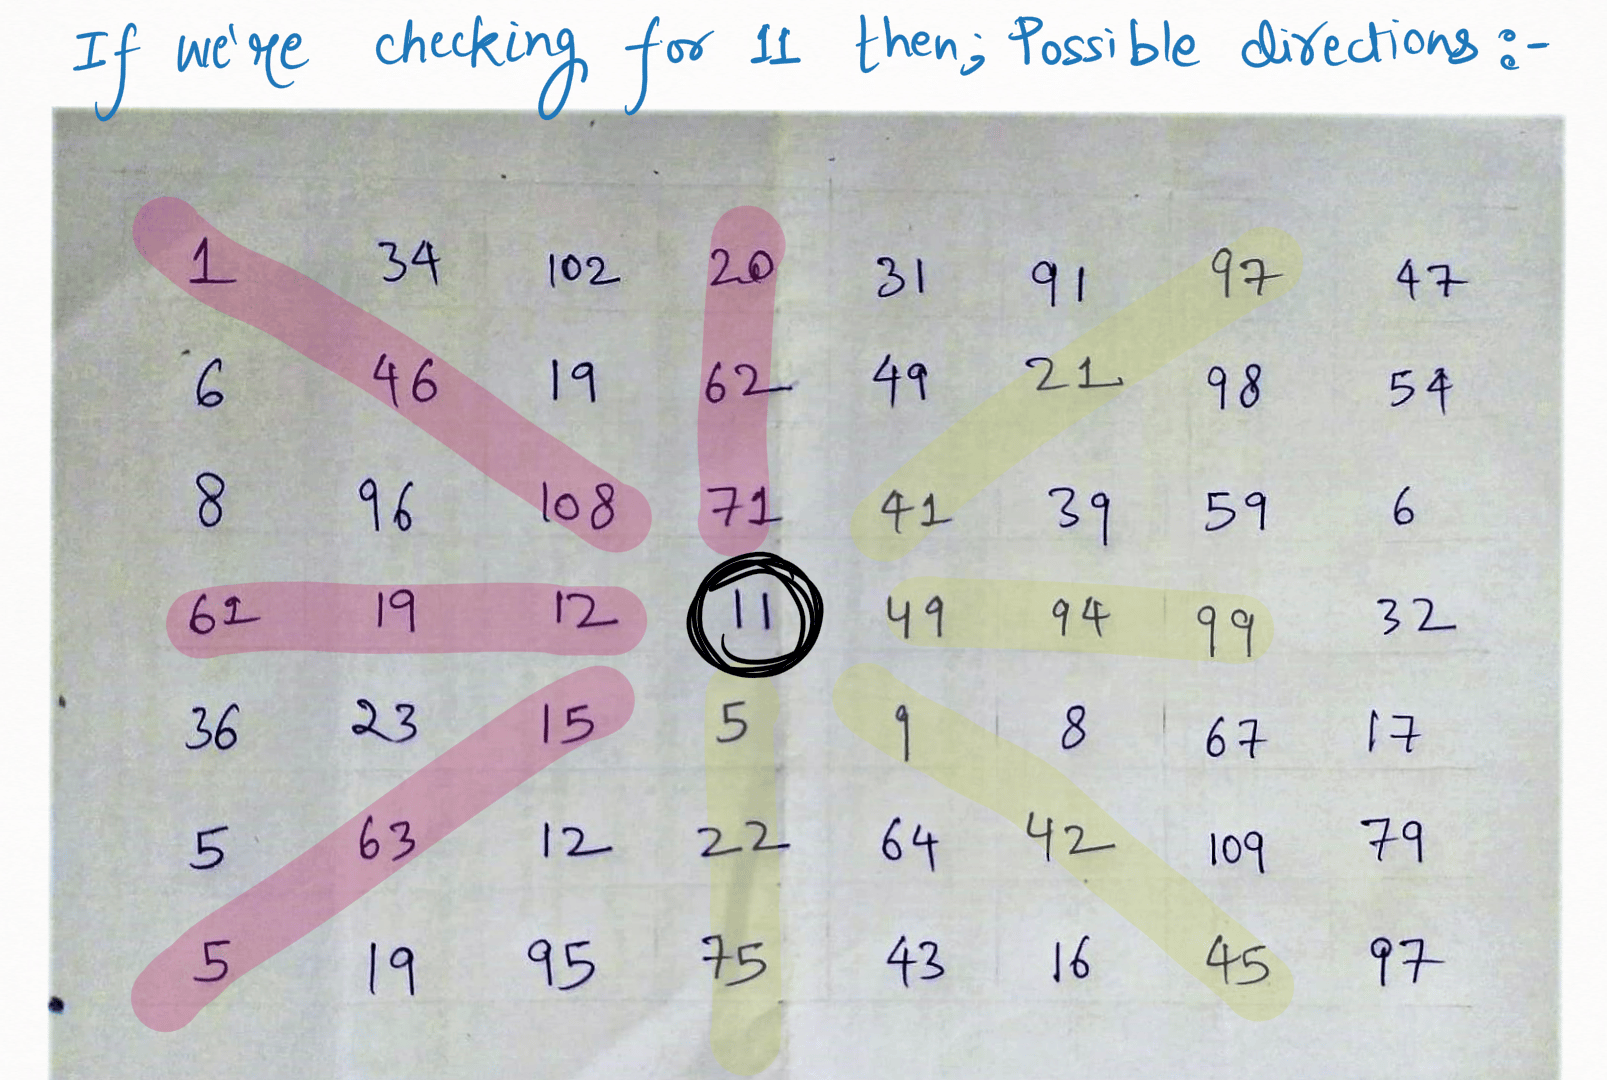 If we're checking for 11 then; Possible directions :-
1 34 102 20 31 91 97 47
6 46 19 62 49 21 98 54
8 96 108 71 41 39 59 6
61 19 12 11 49 94 99 32
36 23 15 5 9 8 67 17
5 63 12 22 64 42 109 79
5 19 95 75 43 16 45 97